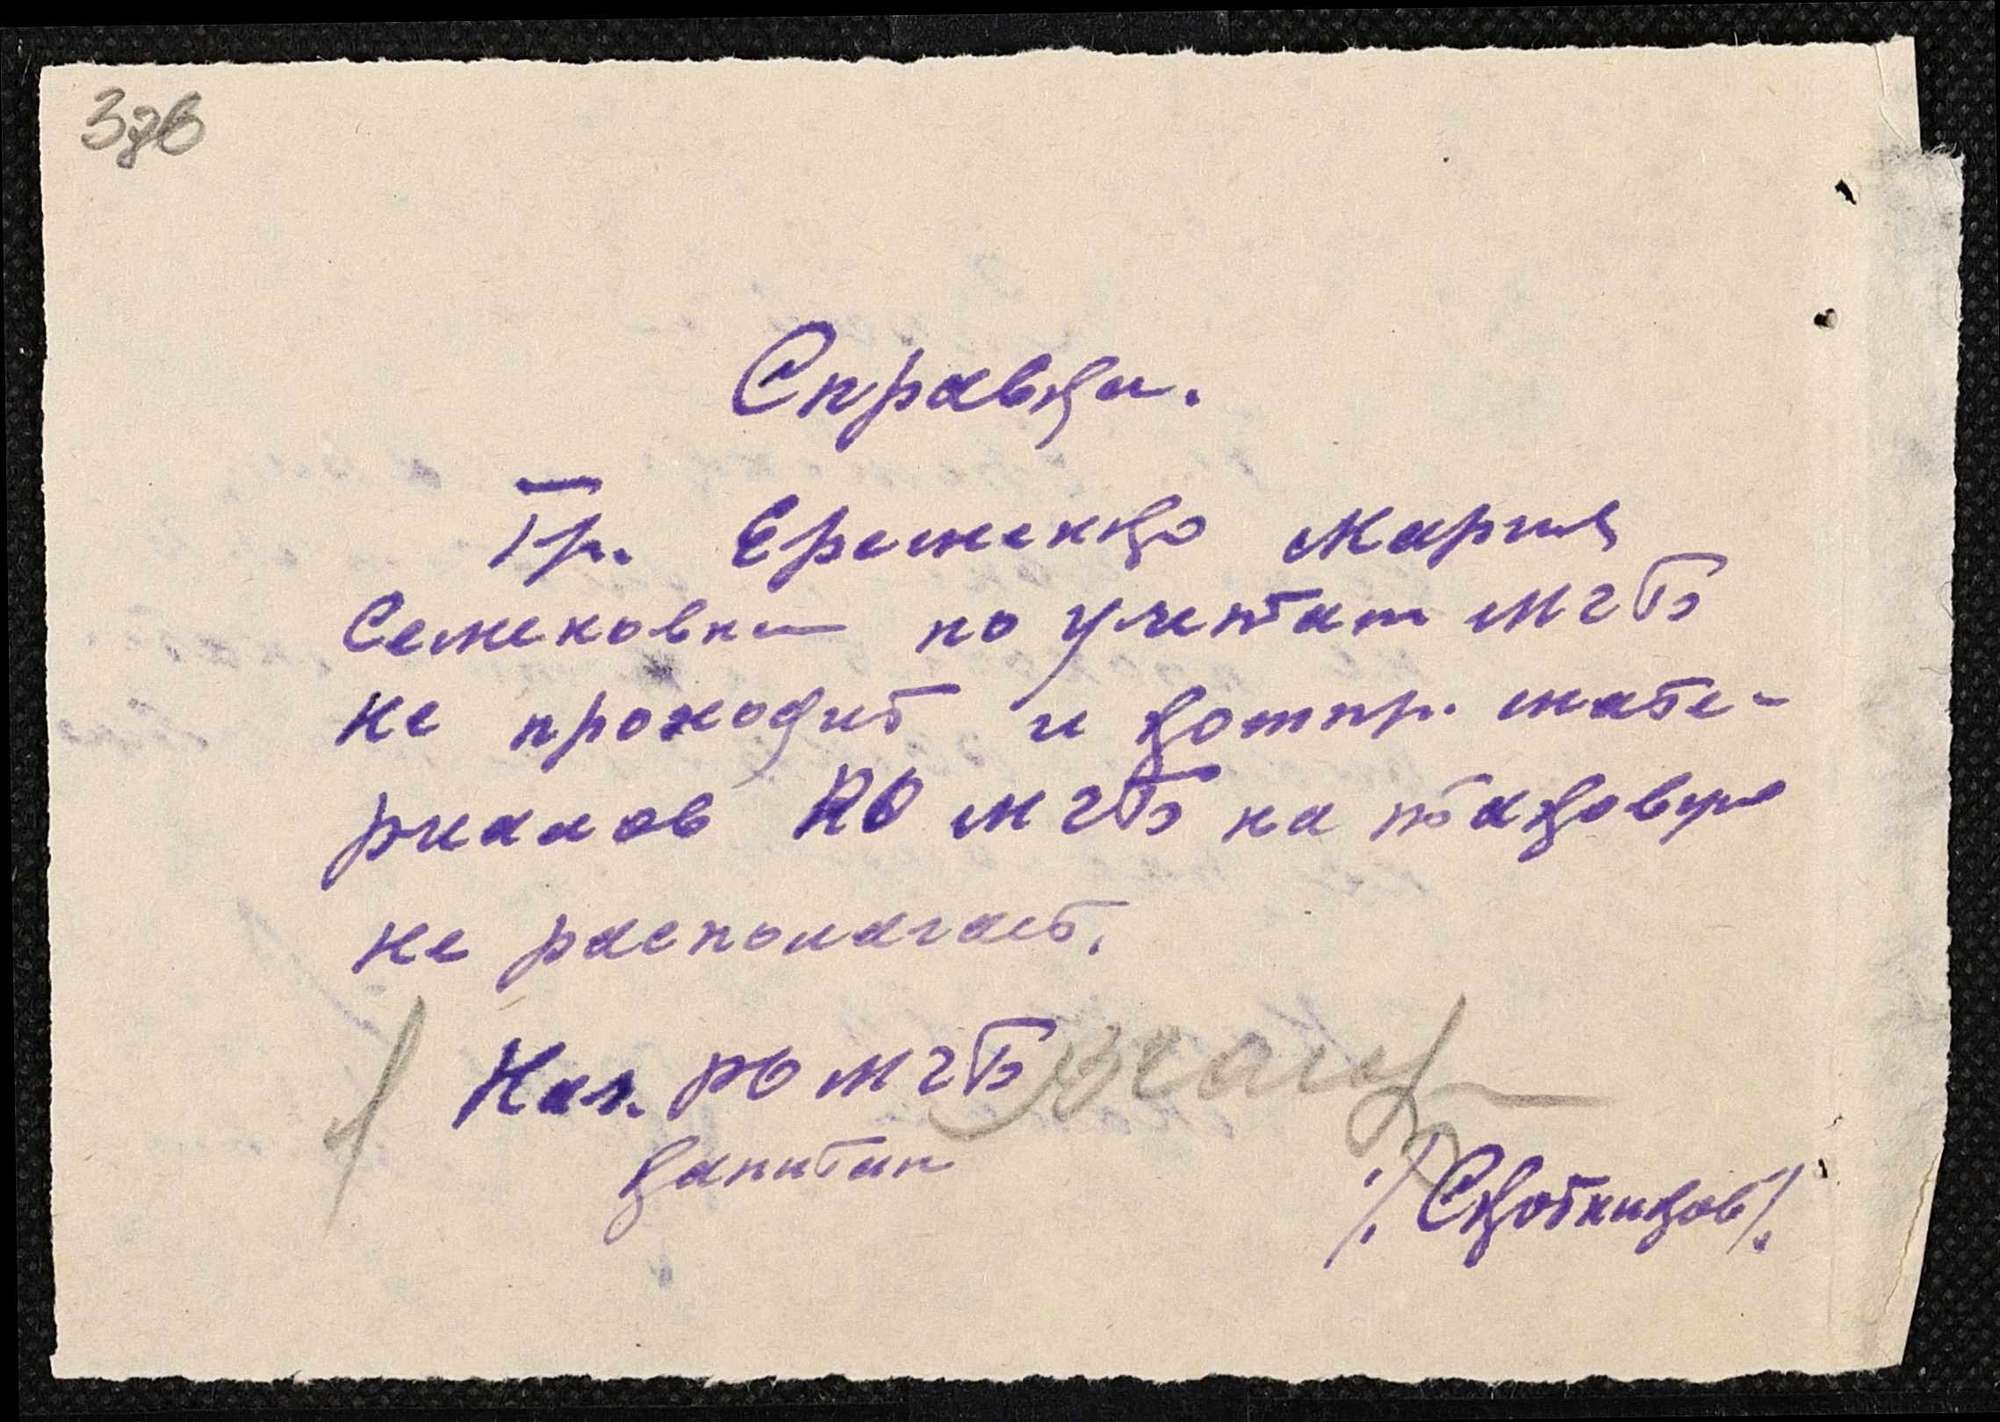 Справка.
Гр. Еременко Мария
Семеновна по учетам МГБ
не проходит и компр. мате-
риалов РО МГБ на таковую
не располагает.
Нач. РО МГБ
капитан
/Скотников/.